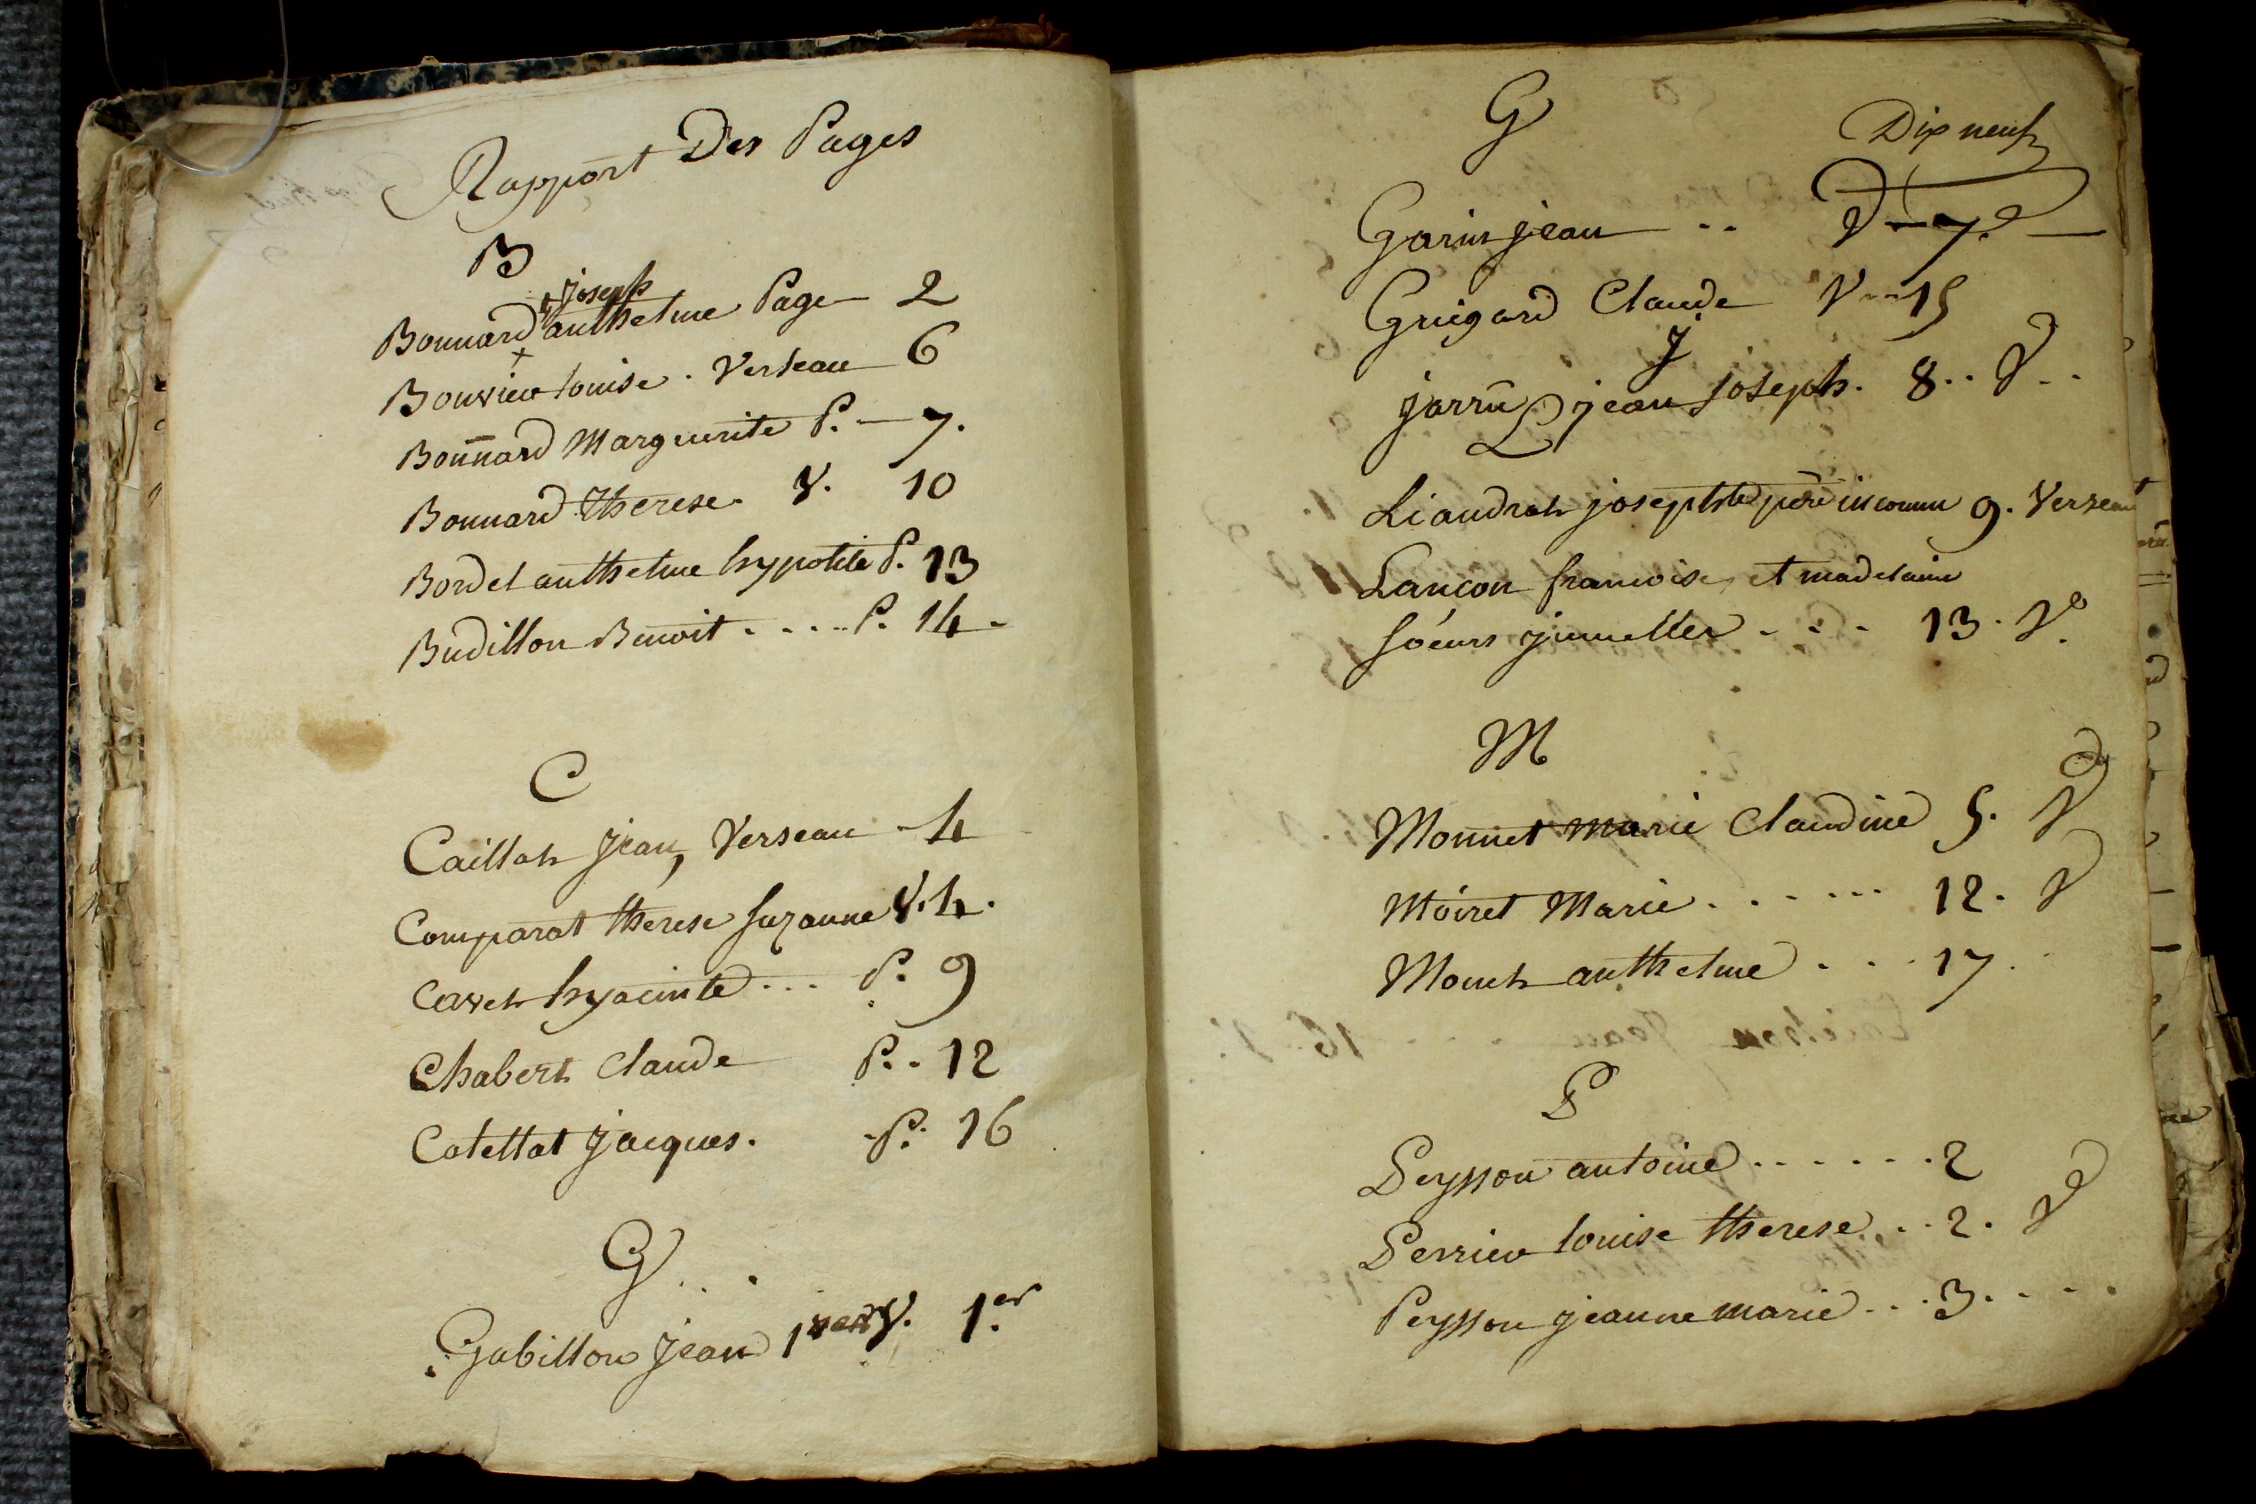 Rapport Des Pages
B
joseph
Bonnard anthelme Page 2
Bouvier louise . Verseau 6
Bonnard Marguerite P. - 7.
Bonnard Therese . V. 10
Bordel anthelme hypolite P. 13
Budillon Benoit . . . . P. 14 -
C
Caillat Jean, Verseau - 4
Comparat therese suzanne V. 4.
Cavet hyacinte . . . P. 9
Chabert Claude P. . 12
Cotettat Jacques. P. 16
G
Gabillon Jean V. 1er
G
Dix neuf
Garin jean . . V - 7.
Guigard Claude V -- 15
J
jarrin jean joseph. 8 . . V . .
L
Liaudrat joseph père inconnu 9. Verseau
Lancon francoise et madelaine
soeurs jumelles . . . 13. Vo
M
Monnet marie Claudine 5. V
Moiret Marie . . . . . . 12. V
Monet anthelme . . . 17
P
Peysson antoine . . . . . . 2
Perrier louise therese . . 2. V
Peysson jeanne marie . . . 3 . . . .